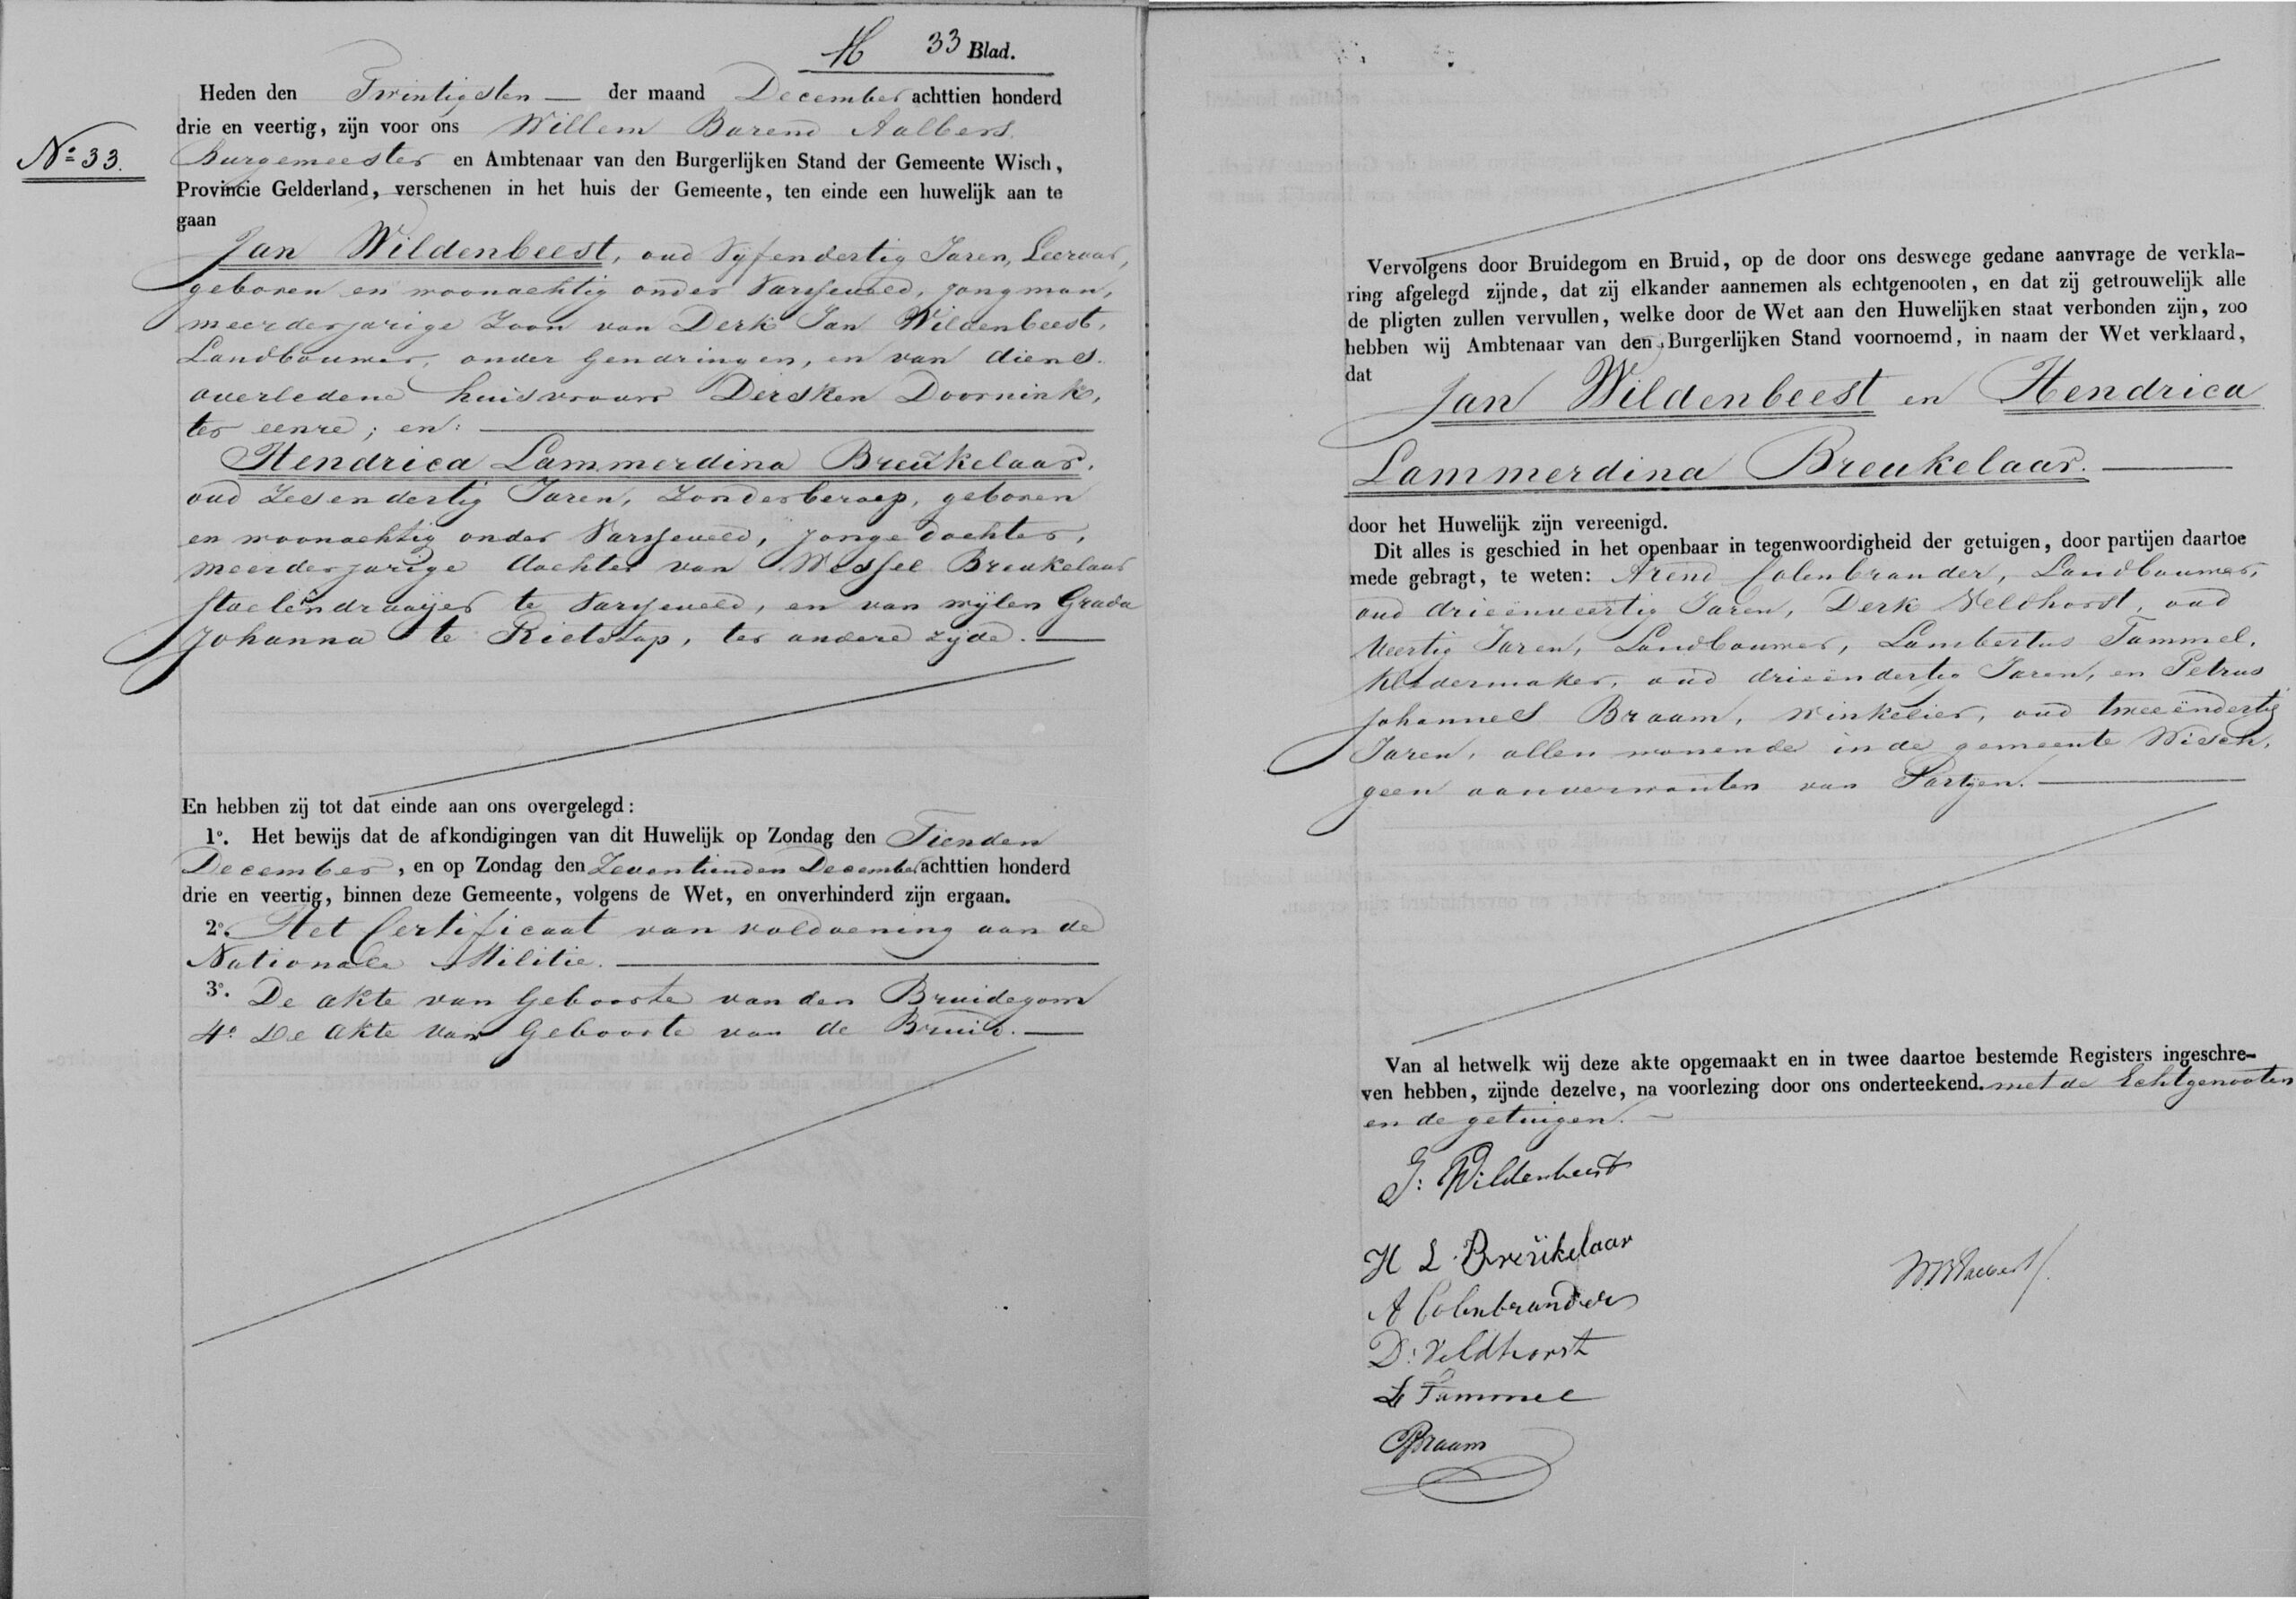 33 Blad.
Heden den Twintigsten — der maand December achttien honderd
drie en veertig, zijn voor ons Willem Barend Aalbers
Burgemeester en Ambtenaar van den Burgerlijken Stand der Gemeente Wisch,
No 33.
Provincie Gelderland, verschenen in het huis der Gemeente, ten einde een huwelijk aan te
gaan
Jan Wildenbeest, oud Vijfendertig Jaren, Leeraar,
geboren en woonachtig onder Varsseveld, jongman,
meerderjarige Zoon van Derk Jan Wildenbeest,
Landbouwer, onder Gendringen, en van diens
overledene huisvrouw Dersken Doornink,
ter eenre; en:
Hendrica Lammerdina Breukelaar,
oud Zesendertig Jaren, Zonder beroep, geboren
en woonachtig onder Varsseveld, jonge dochter,
meerderjarige dochter van Wessel Breukelaar
Stoelendraaijer te Varsseveld, en van wijlen Grada
Johanna te Rietstap, ter andere zijde. —
En hebben zij tot dat einde aan ons overgelegd:
1o. Het bewijs dat de afkondigingen van dit Huwelijk op Zondag den Tienden
December, en op Zondag den Zeventienden December achttien honderd
drie en veertig, binnen deze Gemeente, volgens de Wet, en onverhinderd zijn ergaan.
2o. Het Certificaat van voldoening aan de
Nationale Militie. —
3o. De akte van Geboorte van den Bruidegom
4o De akte van Geboorte van de Bruid. —
Vervolgens door Bruidegom en Bruid, op de door ons deswege gedane aanvrage de verkla-
ring afgelegd zijnde, dat zij elkander aannemen als echtgenooten, en dat zij getrouwelijk alle
de pligten zullen vervullen, welke door de Wet aan den Huwelijken staat verbonden zijn, zoo
hebben wij Ambtenaar van den Burgerlijken Stand voornoemd, in naam der Wet verklaard,
dat
Jan Wildenbeest en Hendrica
Lammerdina Breukelaar. —
door het Huwelijk zijn vereenigd.
Dit alles is geschied in het openbaar in tegenwoordigheid der getuigen, door partijen daartoe
mede gebragt, te weten: Arend Colenbrander, Landbouwer,
oud drieënveertig Jaren, Derk Veldhorst, oud
Veertig Jaren, Landbouwer, Lambertus Tammel,
Kleedermaker, oud drieëndertig Jaren, en Petrus
Johannes Braam, winkelier, oud tweeëndertig
Jaren, allen wonende in de gemeente Wisch,
geen aanverwanten van Partijen. —
Van al hetwelk wij deze akte opgemaakt en in twee daartoe bestemde Registers ingeschre-
ven hebben, zijnde dezelve, na voorlezing door ons onderteekend. met de Echtgenooten
en de getuigen. —
J: Wildenbeest
H L Breukelaar
A Colenbrander
D: Veldhorst
L Tammel
PJBraam
WBAalbers